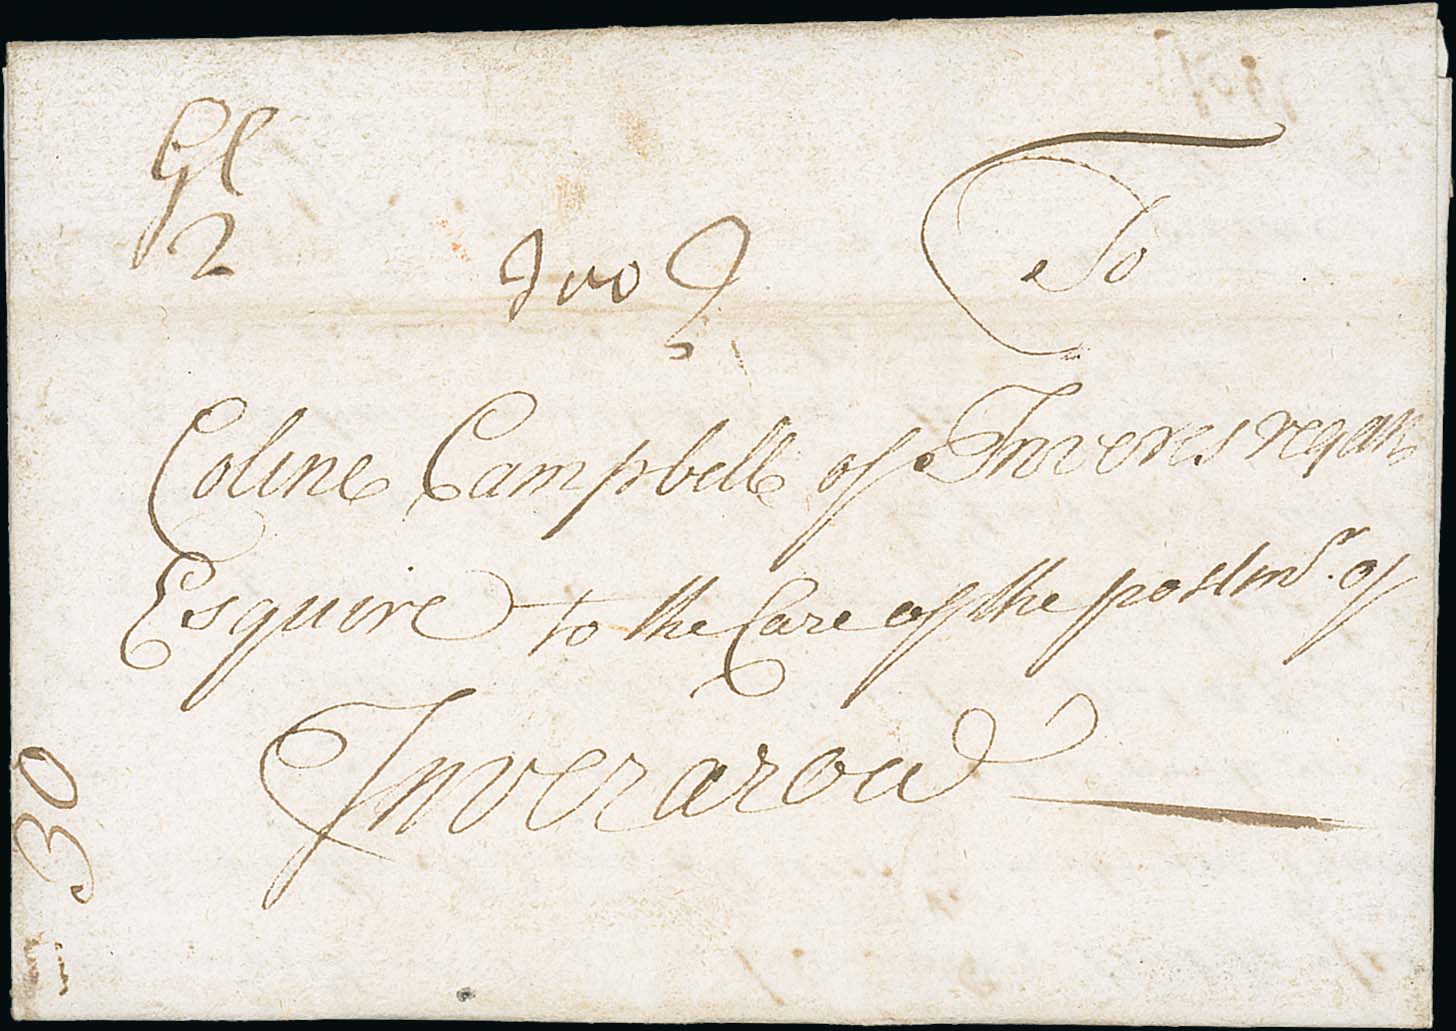 Gl
2
To
Coline Campbell of Inveresregan
Esquire to the Care of the postmr. of
Inverarou
30